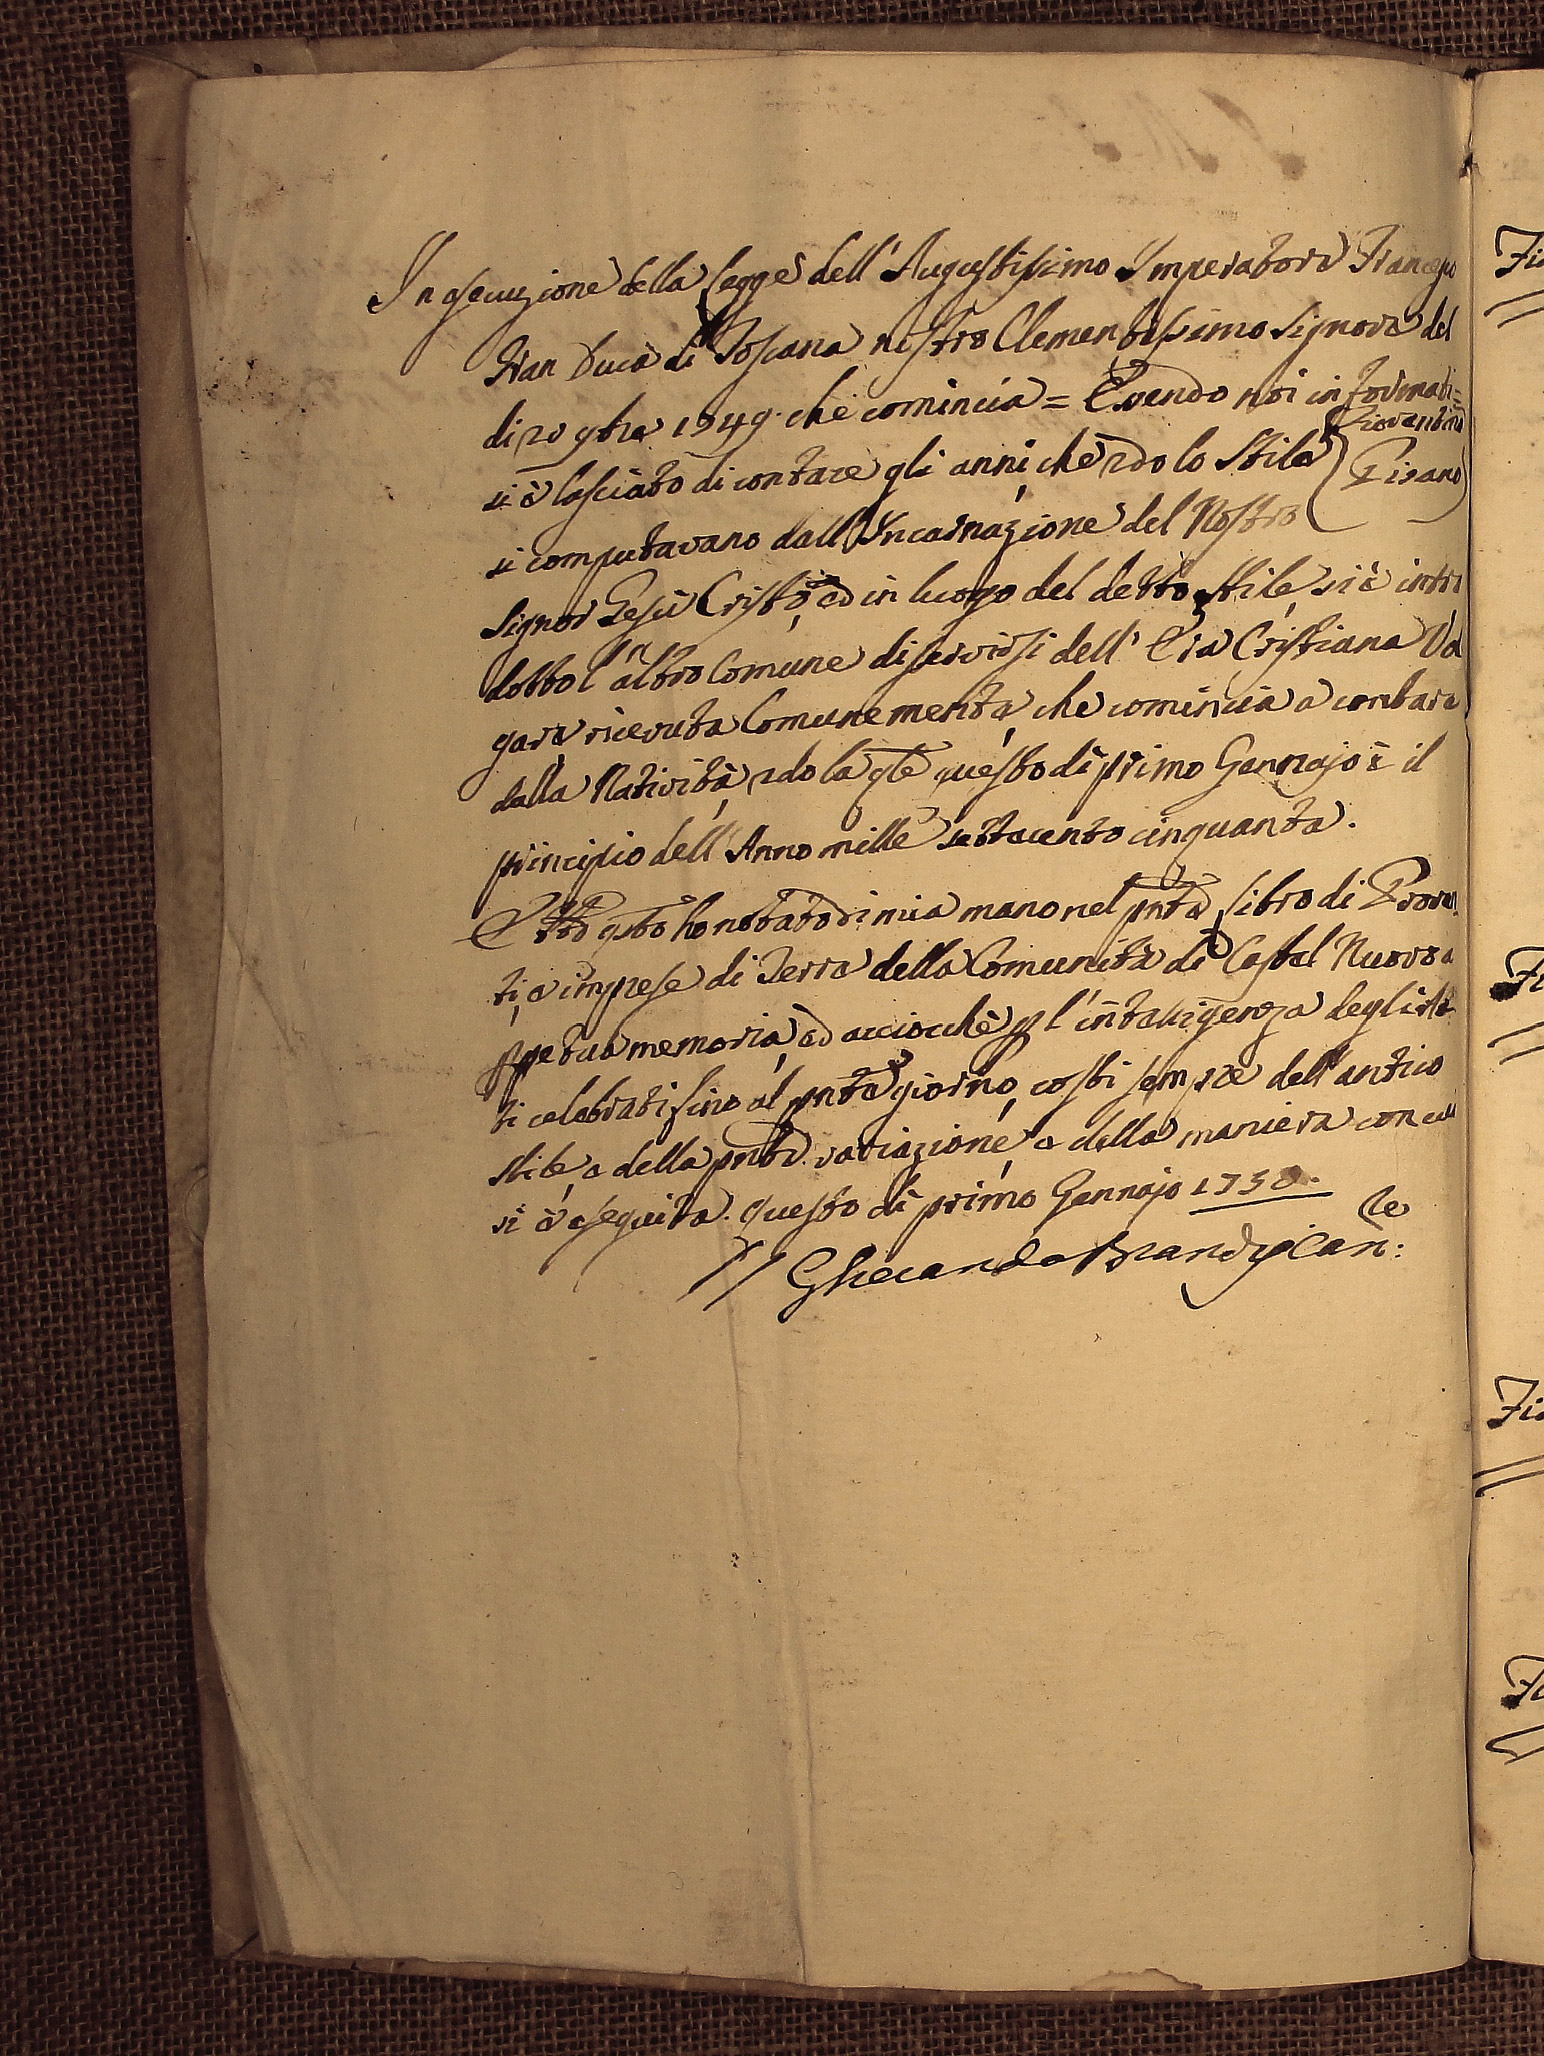 In esecuzione della Legge dell'Augustissimo Imperatore Francesco
Gran Duca di Toscana nostro Clementissimo Signore del
di 20 9bre 1749. che comincia = Essendo noi informati =
si è lasciato di contare gli anni, che 2do lo Stile (Fiorentino
Pisano)
si computavano dall'Incarnazione del Nostro
Signor Gesù Cristo, ed in luogo del detto stile, si è intro
dotto l'altro Comune di servirsi dell'Era Cristiana Vol
gare ricevuta Comunemente, che comincia a contare
dalla Natività, 2do la qle questo dì primo Gennajo è il
principio dell'Anno mille settecento cinquanta.
E tto qsto ho notato di mia mano nel pnte Libro di Proven
ti, e imprese di Terre della Comunità di Castel Nuovo a
ppetua memoria, ed acciocchè p l'intelligenza degli At
ti celebrati fino al pnte giorno, costi sempre dell'antico
stile, e della pnte variazione, e della maniera con cui
si è eseguita. questo dì primo Gennajo 1750.
Gherardo Can:re
Fi
Fi
Fi